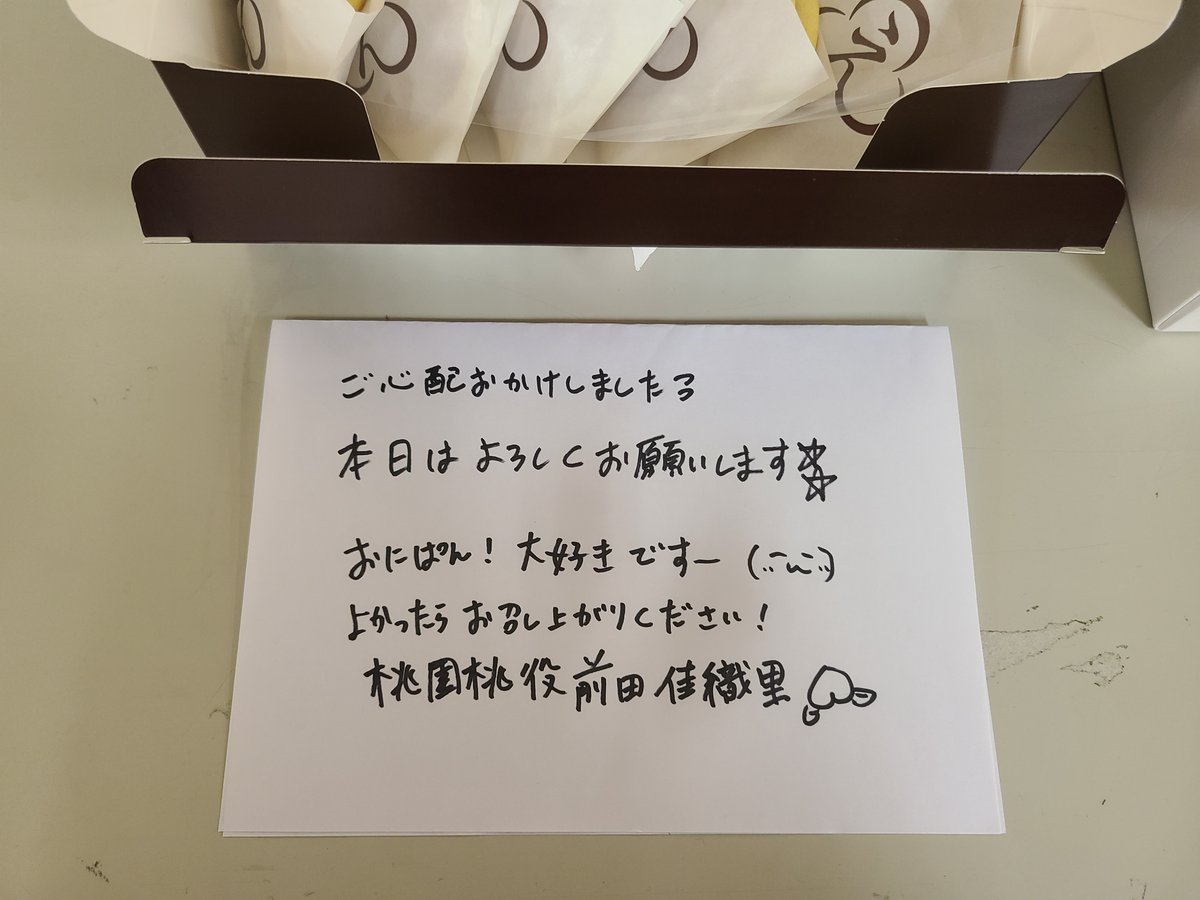 ご心配おかけしました
本日はよろしくお願いします☆☆
おにぱん！大好きですー
よかったらお召し上がりください！
桃園桃役前田佳織里